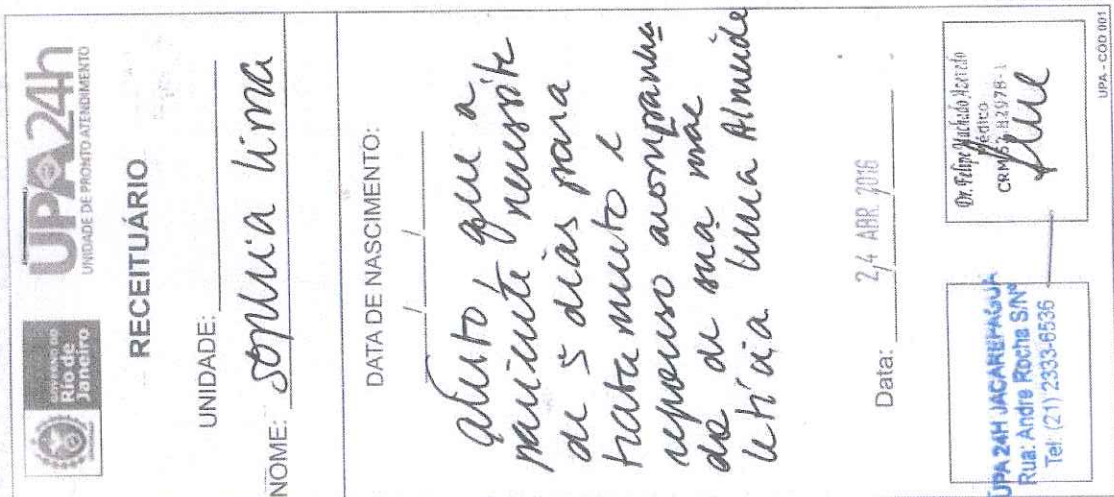 GOVERNO DO
Rio de
Janeiro
UPA24h
UNIDADE DE PRONTO ATENDIMENTO
RECEITUÁRIO
UNIDADE:
NOME: Sophia Lima
DATA DE NASCIMENTO: / /
Atesto, que a
paciente necessite
de 5 dias para
tratamento e
repouso acompanha
da de sua mãe
Letícia Lima Almeida
Data: 24 ABR. 2016
UPA 24H JACAREPAGUÁ
Rua: Andre Rocha S/Nº
Tel: (21) 2333-6536
Dr. Felipe Machado Azevedo
Médico
CRM 52 82978-1
UPA - COD 001